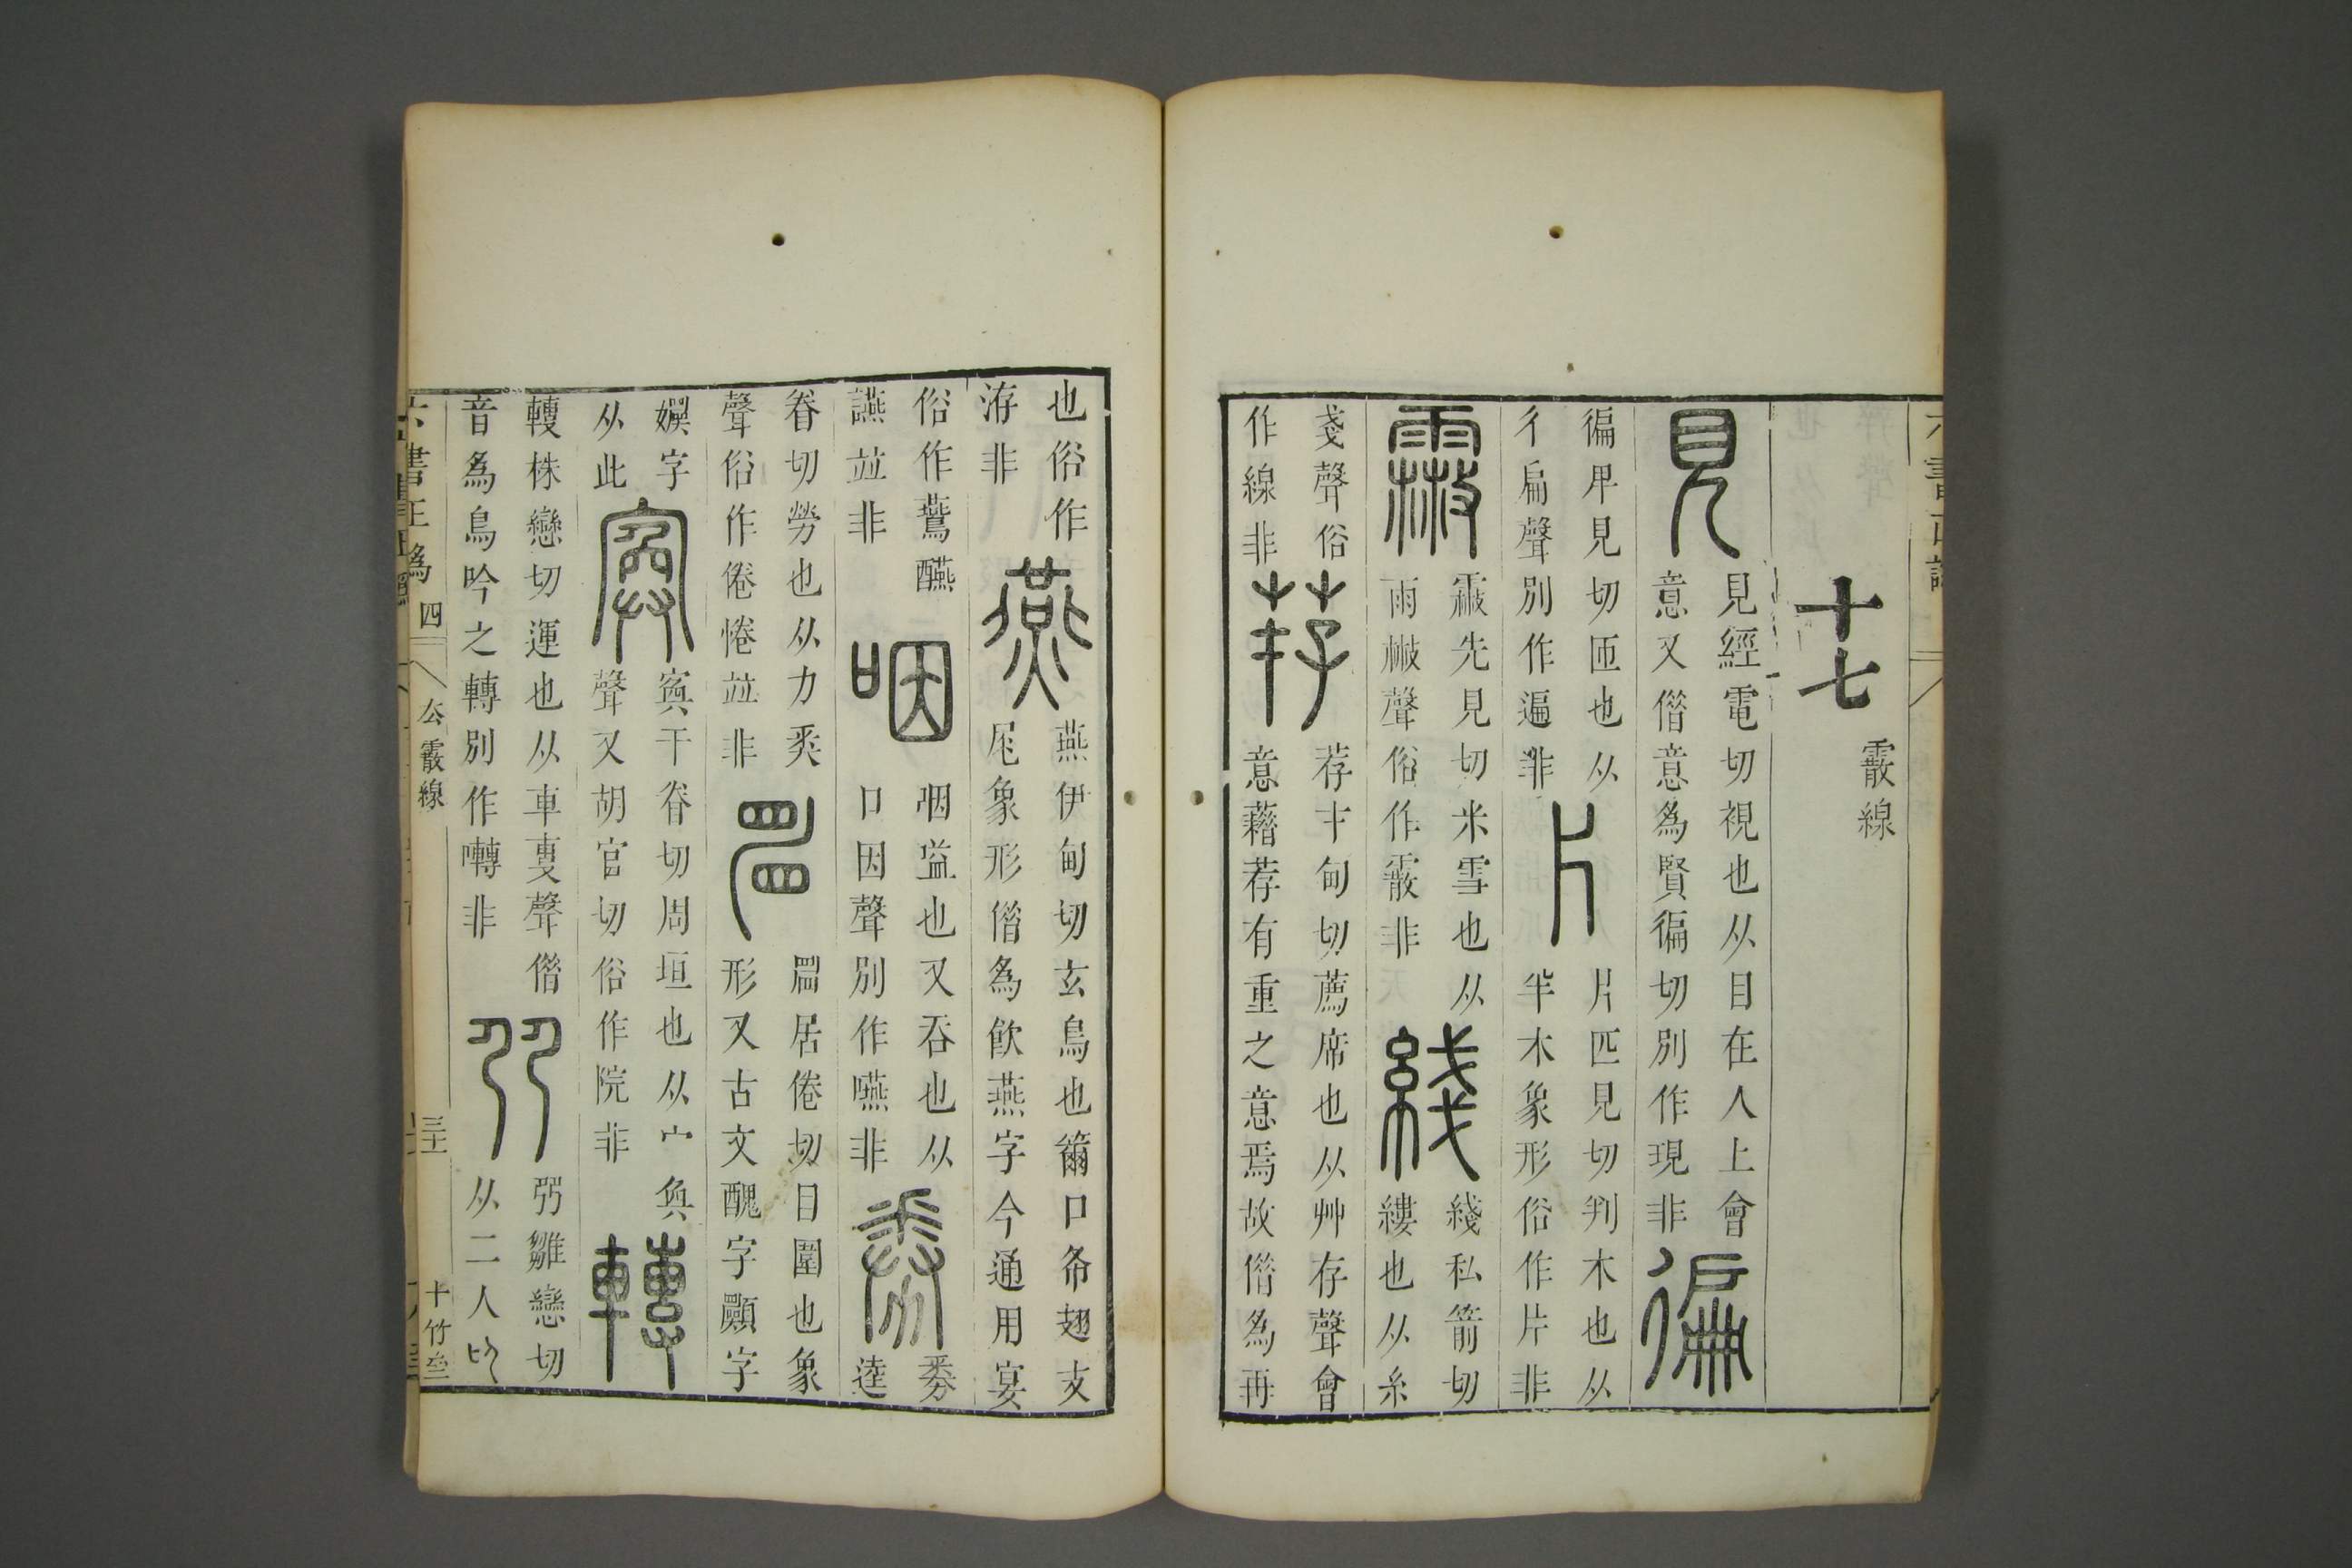 十七
霰線
見
見經電切視也从目在人上會
意又僣意為賢徧切別作現非
徧
徧甲見切匝也从
彳扁聲別作遍非
片
片匹見切判木也从
半木象形俗作片非
霰先見切米雪也从
雨㪔聲俗作霰非
綫
綫私箭切
縷也从糸
戔聲俗
作線非
荐
荐才甸切薦席也从艸存聲會
意藉荐有重之意焉故僣為再
也俗作
洊非
燕
燕伊甸切玄鳥也籋口布翅支
尾象形僣為飲燕字今通用宴
俗作鷰醼
讌並非
咽
咽嗌也又吞也从
口因聲別作嚥非
逵
眷切勞也从力
聲俗作倦惓並非
居倦切目圍也象
形又古文醜字顯字
字
从此
寏干眷切周垣也从宀奐
聲又胡官切俗作院非
轉
轉株戀切運也从車叀聲僣
音為鳥吟之轉別作囀非
雛戀切
从二人
六書正譌
四
去霰線
三十
十竹